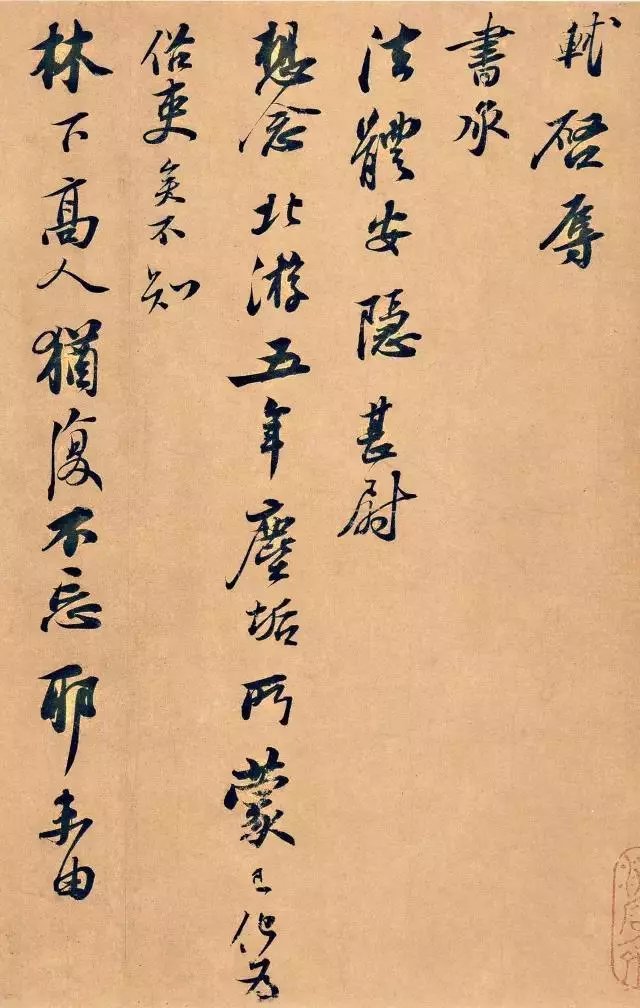 軾啓辱
書承
法體安隱甚尉
想念北游五年塵垢所蒙已化為
俗吏矣不知
林下高人猶復不忘耶未由